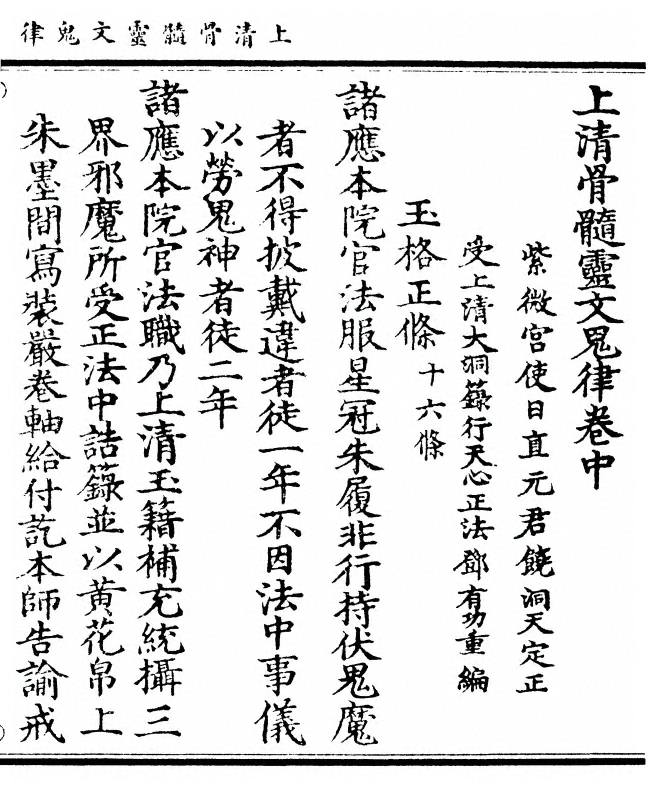 上清骨髓靈文鬼律
上清骨髓靈文鬼律卷中
紫微宫使日直元君饒洞天定正
受上清大洞籙行天心正法鄧有功重編
玉格正條十六條
諸應本院官法服星冠朱履非行持伏鬼魔
者不得披戴違者徒一年不因法中事儀
以勞鬼神者徒二年
諸應本院官法職乃上清玉籍補充統攝三
界邪魔所受正法中誥籙並以黄花帛上
朱墨間寫裝嚴卷軸給付訖本師告諭戒